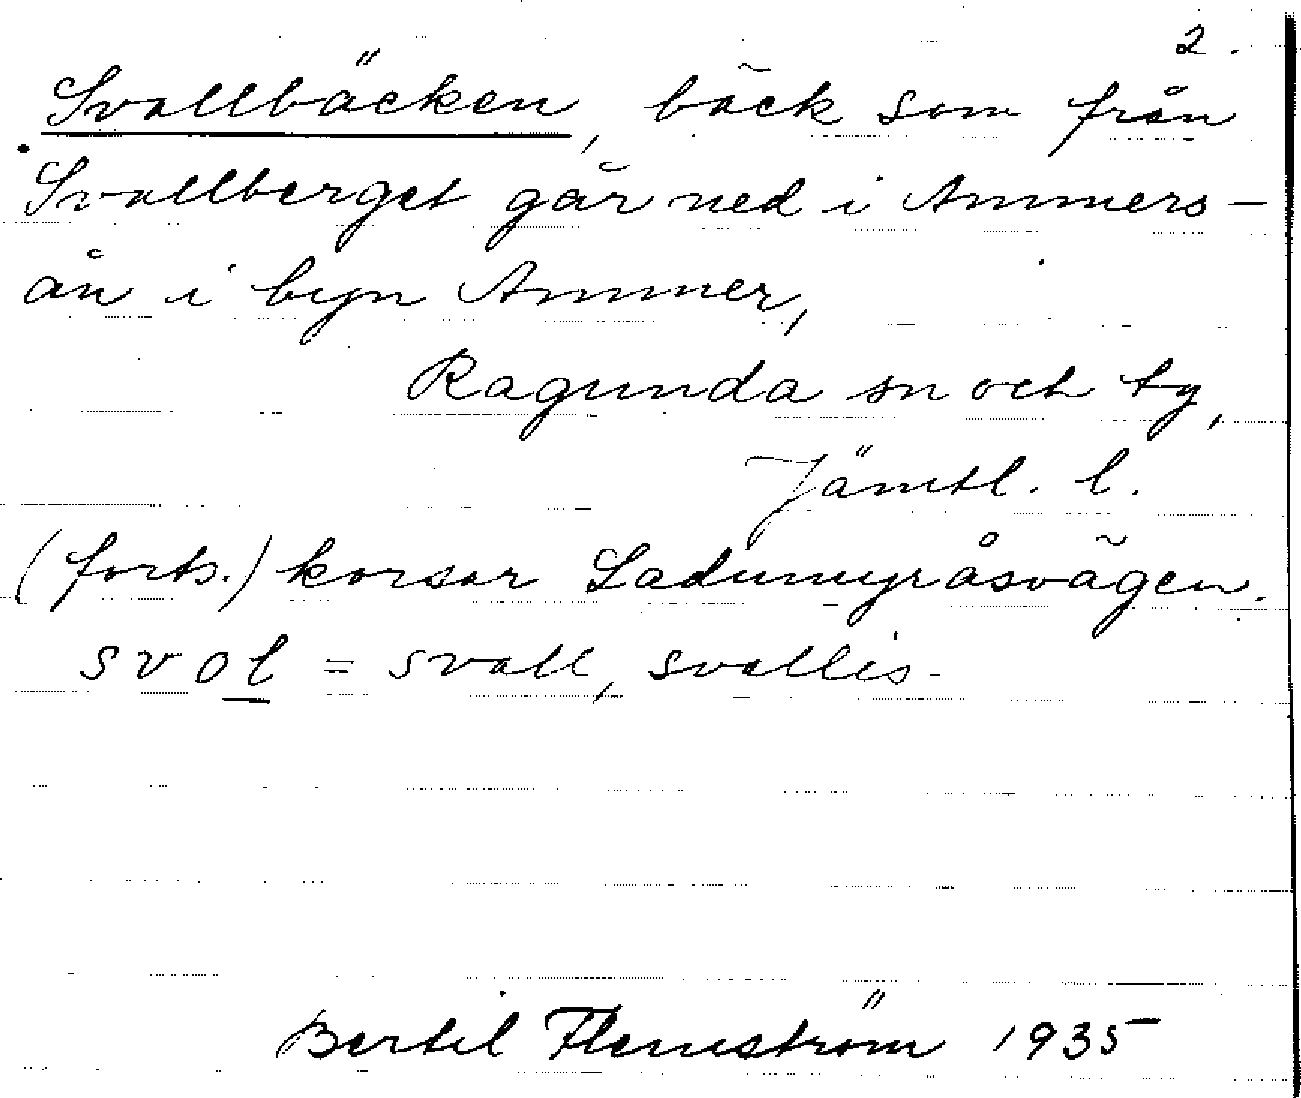 2.
Svallbäcken, bäck som från
Svallberget går ned i Ammers-
ån i byn Ammer,
Ragunda sn och tg,
Jämtl. l.
(forts.) korsar Ladumyråsvägen.
svol = svall, svallis.
Bertil Flemström 1935